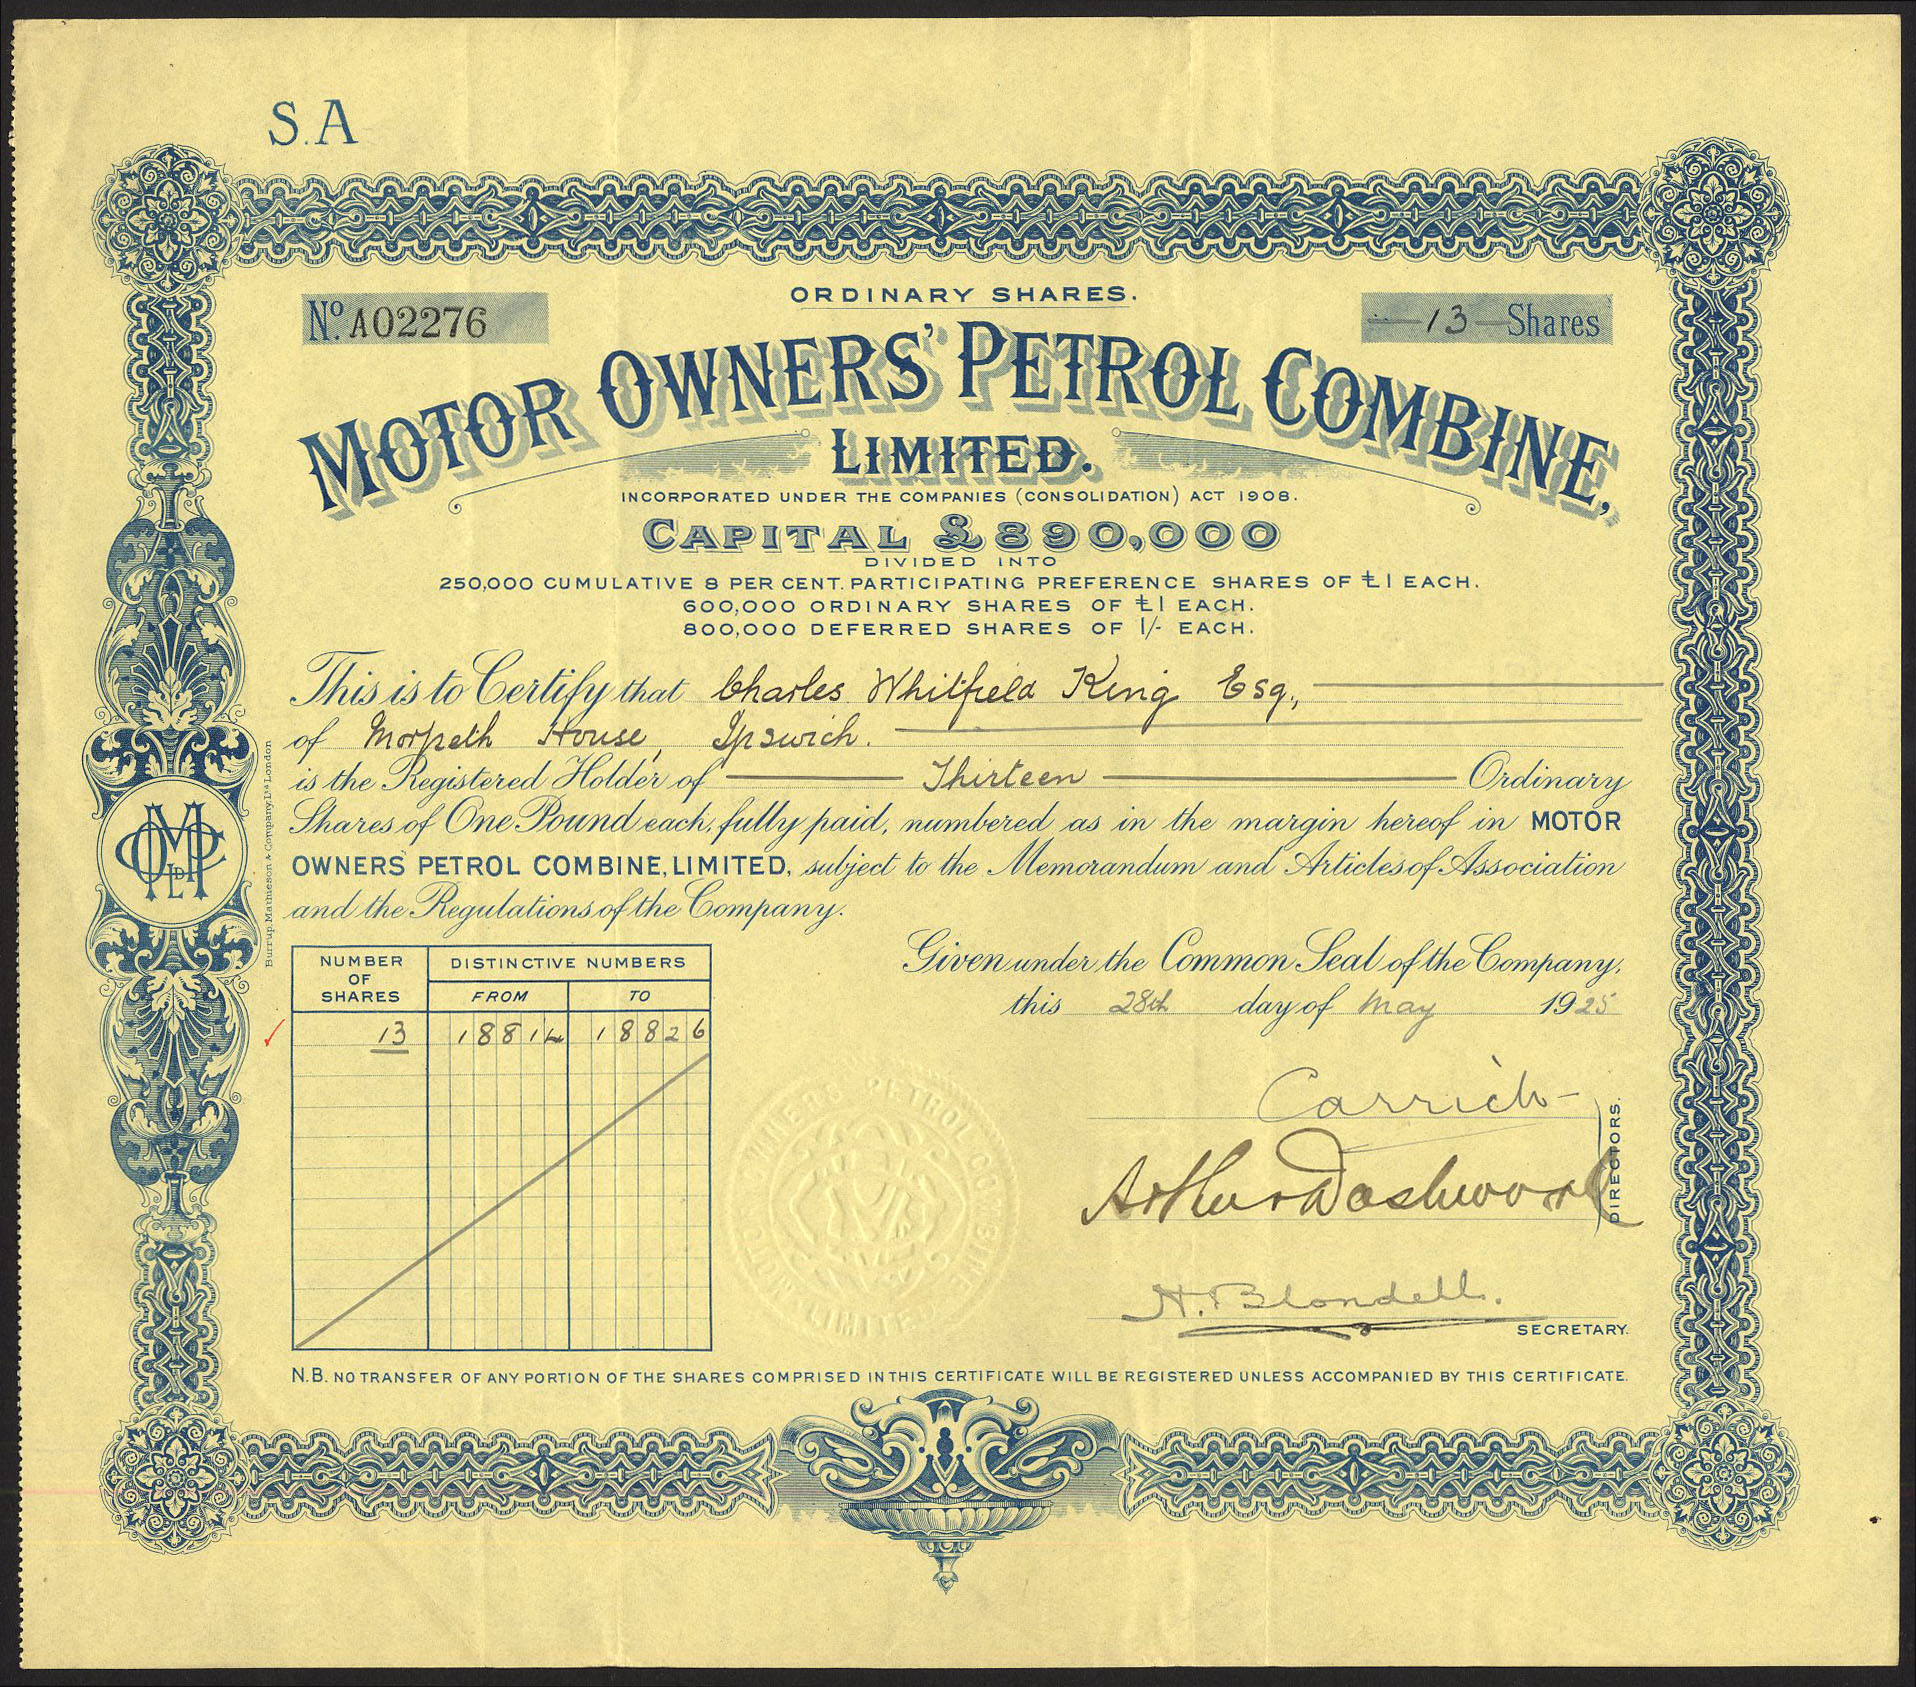 S.A
ORDINARY SHARES.
No. A02276
13 Shares
MOTOR OWNERS' PETROL COMBINE,
LIMITED.
INCORPORATED UNDER THE COMPANIES (CONSOLIDATION) ACT 1908.
CAPITAL £890,000
DIVIDED INTO
250,000 CUMULATIVE 8 PER CENT. PARTICIPATING PREFERENCE SHARES OF £1 EACH.
600,000 ORDINARY SHARES OF £1 EACH.
800,000 DEFERRED SHARES OF 1/- EACH.
This is to Certify that Charles Whitfield King Esq.,
of Morpeth House, Ipswich.
is the Registered Holder of Thirteen Ordinary
Shares of One Pound each, fully paid, numbered as in the margin hereof in MOTOR
OWNERS' PETROL COMBINE, LIMITED, subject to the Memorandum and Articles of Association
and the Regulations of the Company.
Given under the Common Seal of the Company,
this 28th day of May 1925
NUMBER OF SHARES
DISTINCTIVE NUMBERS
FROM TO
13 18814 18826
Carrick
Arthur Dashwood
DIRECTORS.
H. Blondell.
SECRETARY.
N.B. NO TRANSFER OF ANY PORTION OF THE SHARES COMPRISED IN THIS CERTIFICATE WILL BE REGISTERED UNLESS ACCOMPANIED BY THIS CERTIFICATE.
Burrup, Mathieson & Company, Ld London
MOTOR OWNERS PETROL COMBINE LIMITED